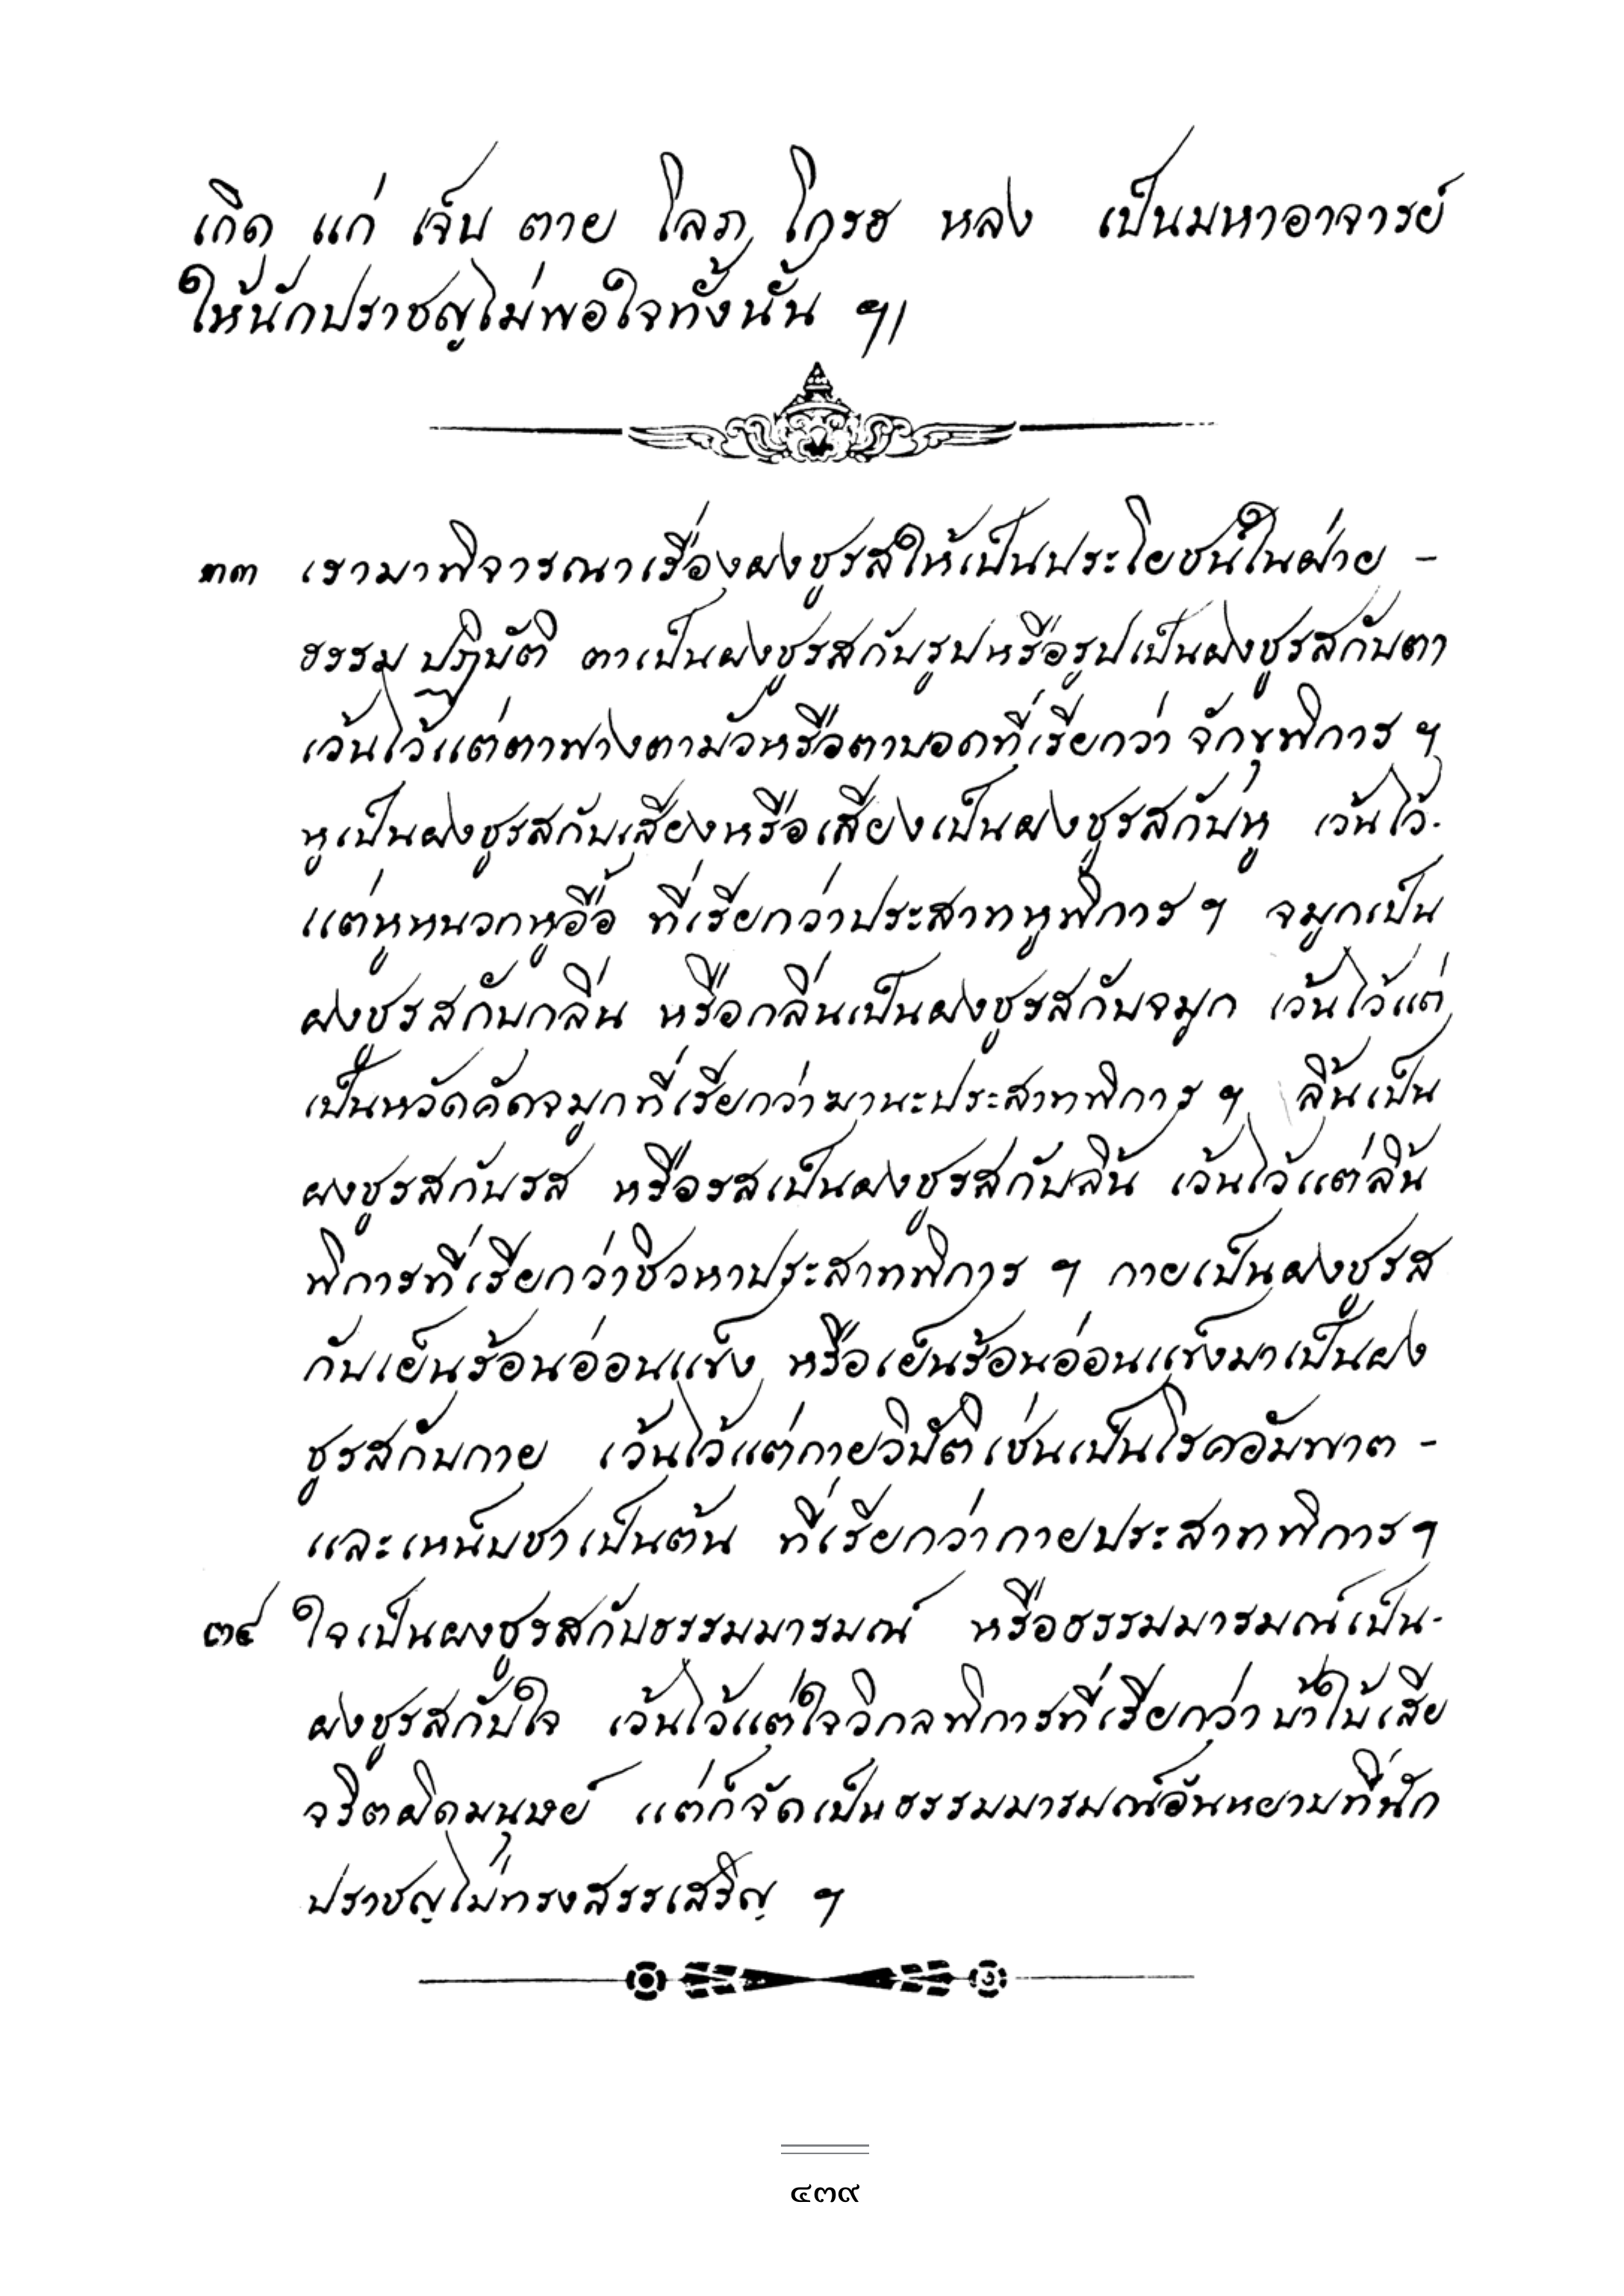 เกิด แก่ เจ็บ ตาย โลภ โกรธ หลง เป็นมหาอาจารย์
ให้นักปราชญไม่พอใจทั้งนั้น ฯ|
๓๓ เรามาพิจารณาเรื่องผงชูรสให้เป็นประโยชน์ในฝ่าย -
ธรรม ปฏิบัติ ตาเป็นผงชูรสกับรูปหรือรูปเป็นผงชูรสกับตา
เว้นไว้แต่ตาฟางตามัวหรือตาบอดที่เรียกว่า จักขุพิการ ฯ
หูเป็นผงชูรสกับเสียงหรือเสียงเป็นผงชูรสกับหู เว้นไว้-
แต่หูหนวกหูอื้อ ที่เรียกว่าประสาทหูพิการ ฯ จมูกเป็น
ผงชูรสกับกลิ่น หรือกลิ่นเป็นผงชูรสกับจมูก เว้นไว้แต่
เป็นหวัดคัดจมูกที่เรียกว่าฆานะประสาทพิการ ฯ ลิ้นเป็น
ผงชูรสกับรส หรือรสเป็นผงชูรสกับลิ้น เว้นไว้แต่ลิ้น
พิการที่เรียกว่าชิวหาประสาทพิการ ฯ กายเป็นผงชูรส
กับเย็นร้อนอ่อนแข็ง หรือเย็นร้อนอ่อนแข็งมาเป็นผง
ชูรสกับกาย เว้นไว้แต่กายวิบัติเช่นเป็นโรคอัมพาต -
และเหน็บชาเป็นต้น ที่เรียกว่ากายประสาทพิการ ฯ
๓๔ ใจเป็นผงชูรสกับธรรมมารมณ์ หรือธรรมมารมณ์เป็น-
ผงชูรสกับใจ เว้นไว้แต่ใจวิกลพิการที่เรียกว่าบ้าใบ้เสีย
จริตผิดมนุษย์ แต่ก็จัดเป็นธรรมมารมณ์อันหยาบที่นัก
ปราชญไม่ทรงสรรเสริญ ฯ
๔๓๙